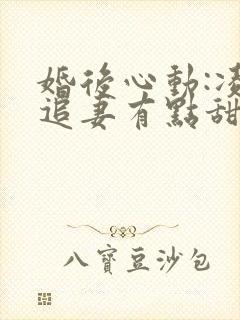 婚後心動:凌
追妻有點甜
八寶豆沙包